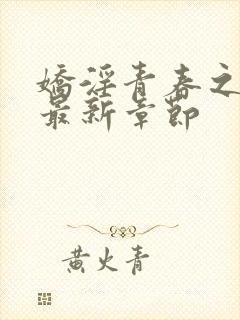 嬌淫青春之
最新章節
黄火青